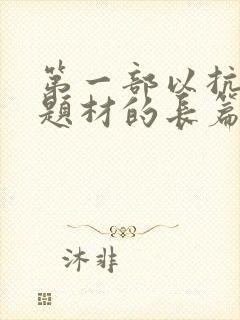 第一部以抗
题材的长篇
沐非